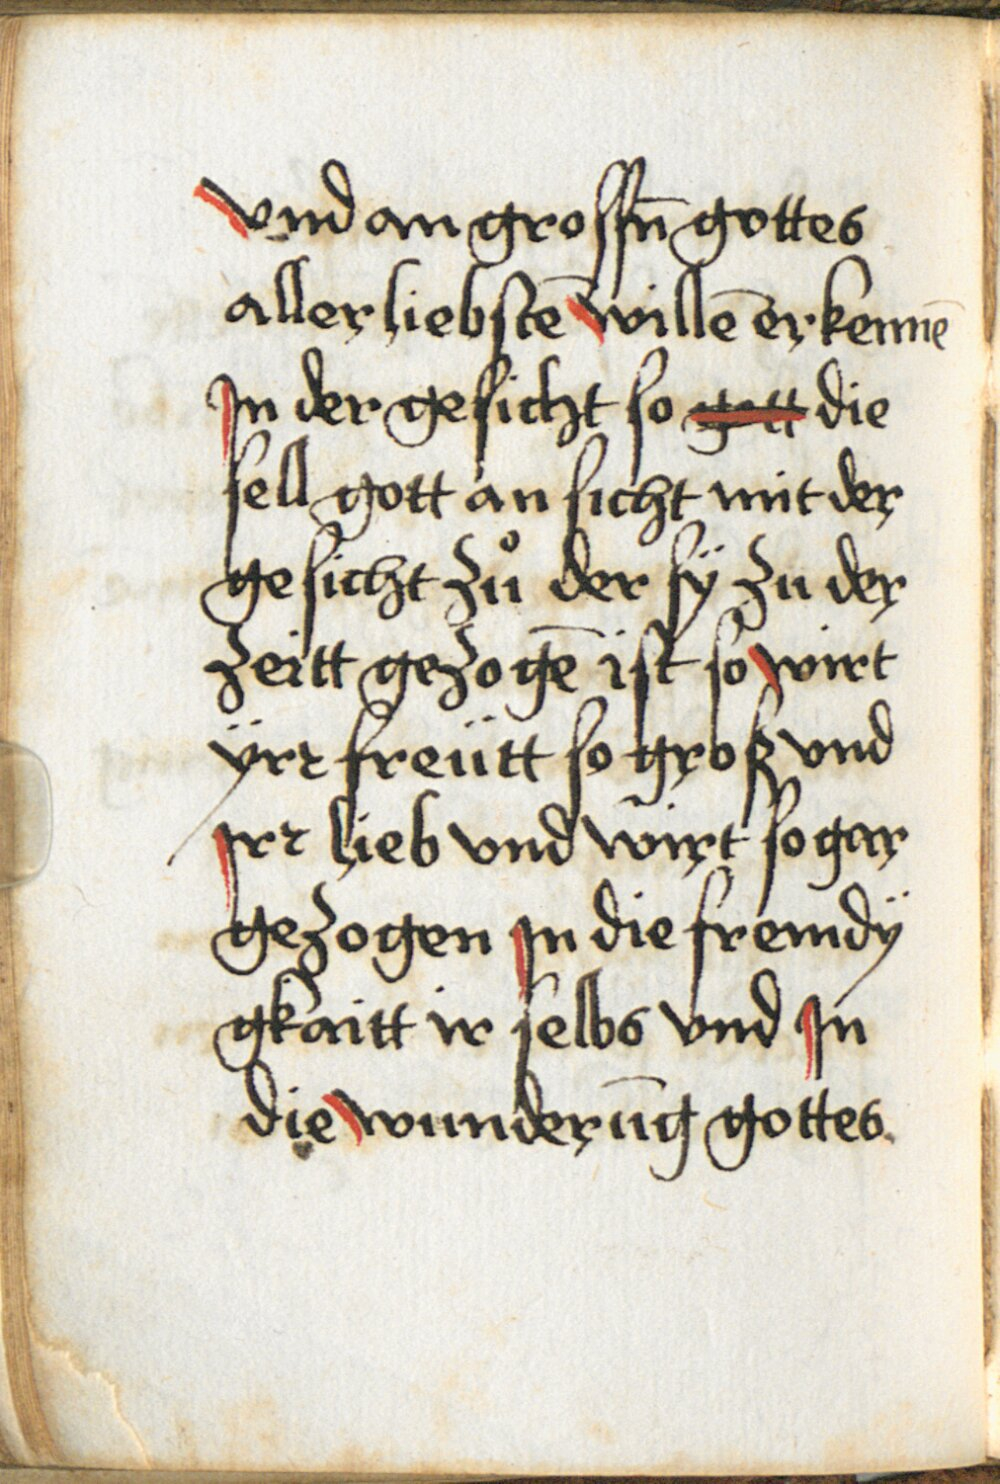 vnd an grossn̄ gottes
aller liebstē willē erkennē
Jn der gesicht so gott die
sell gott an sicht mit der
gesicht zů der sÿ zu der
zeitt gezogē ist so wirt
ÿrr freütt so groß vnd
Jrr lieb vnd wirt so gar
gezogen Jn die fremdÿ
gkaitt ir selbs vnd Jn
die wunderūg gottes